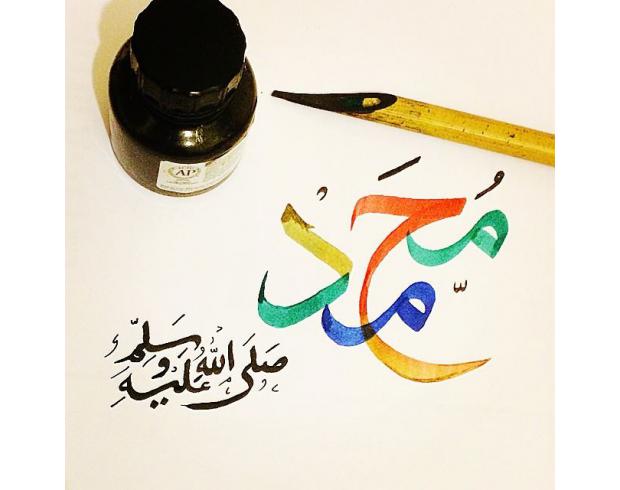 مُحَمَّد
صَلَى اللّٰه عَلَيهِ وَسَلِمّ
AP